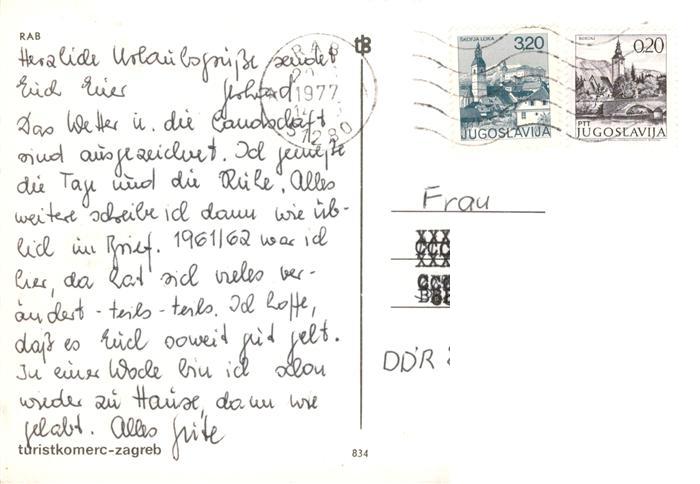 RAB
Herzliche Urlaubsgrüße sendet
Euch Euer Gerhard
Das Wetter u. die Landschaft
sind ausgezeichnet. Ich genieße
die Tage und die Ruhe. Alles
weitere schreibe ich dann wie üb-
lich im Brief. 1961/62 war ich
hier, da hat sich vieles ver-
ändert - teils - teils. Ich hoffe,
daß es Euch soweit gut geht.
In einer Woche bin ich schon
wieder zu Hause, dann wie
gehabt. Alles Gute
turistkomerc-zagreb
834
tB
RAB
1977
51280
ŠKOFJA LOKA
3.20
JUGOSLAVIJA
BOHINJ
0.20
PTT
JUGOSLAVIJA
Frau
DDR